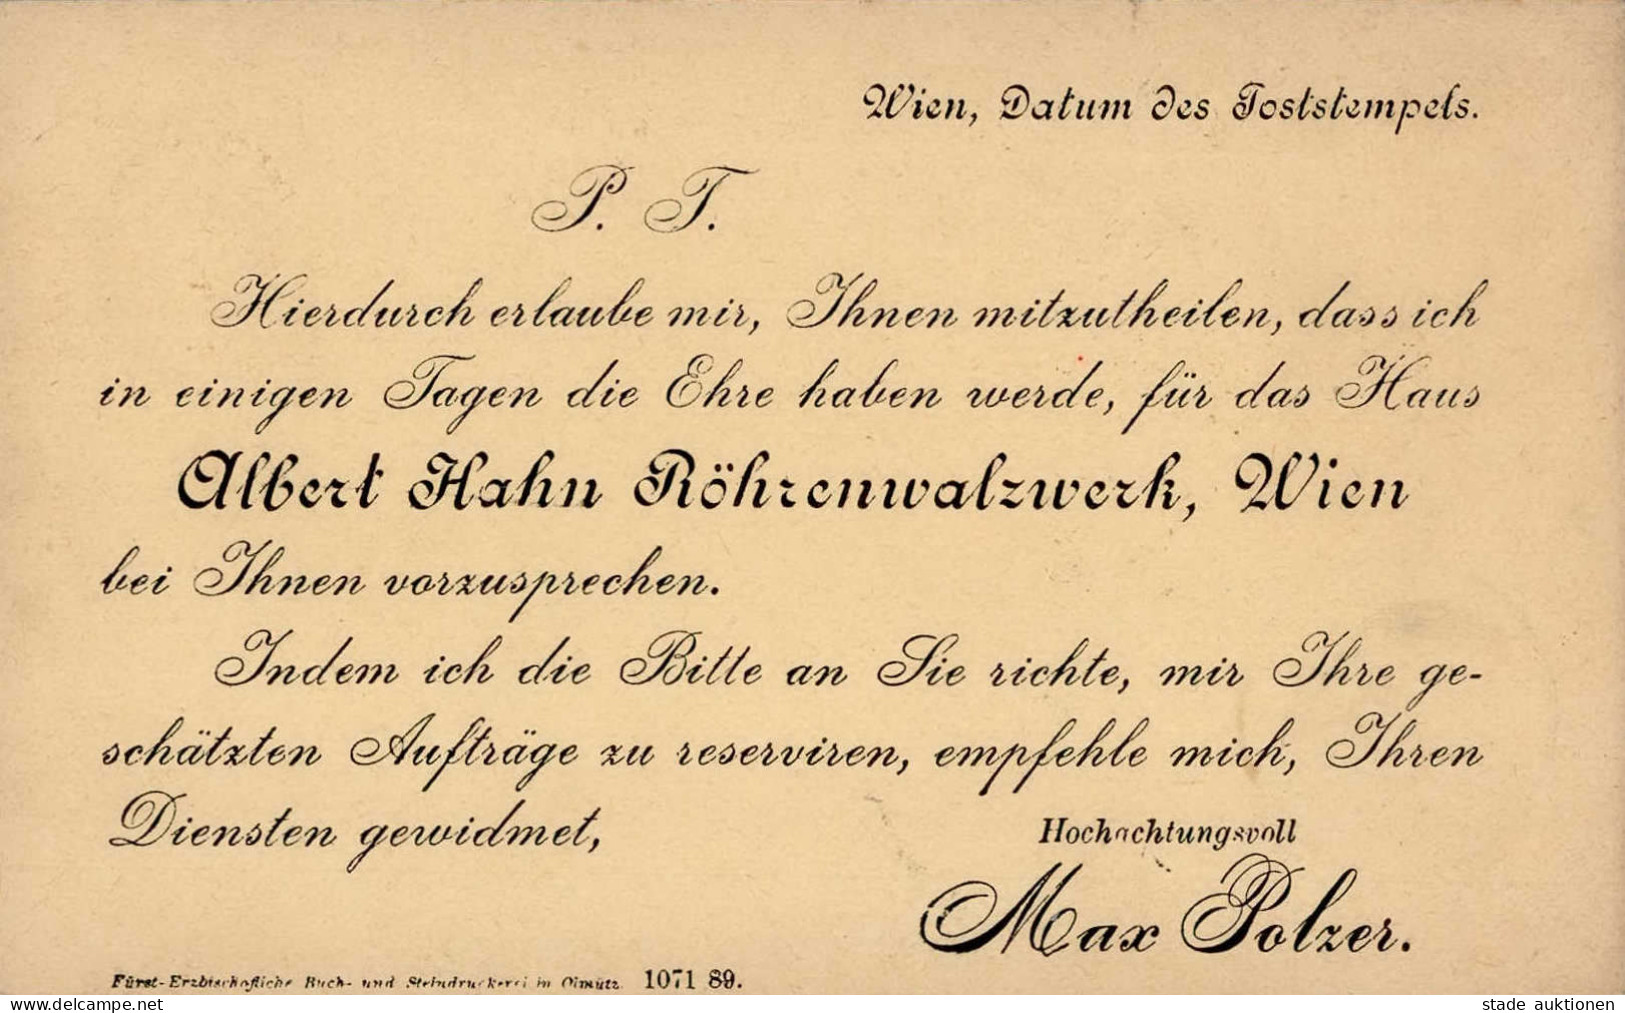 Wien, Datum des Poststempels.
P. T.
Hierdurch erlaube mir, Ihnen mitzutheilen, dass ich
in einigen Tagen die Ehre haben werde, für das Haus
Albert Hahn Röhrenwalzwerk, Wien
bei Ihnen vorzusprechen.
Indem ich die Bitte an Sie richte, mir Ihre ge-
schätzten Aufträge zu reserviren, empfehle mich, Ihren
Diensten gewidmet,
Hochachtungsvoll
Max Polzer.
Fürst-Erzbischöfliche Buch- und Steindruckerei in Olmütz. 1071 89.
www.delcampe.net
stade auktionen